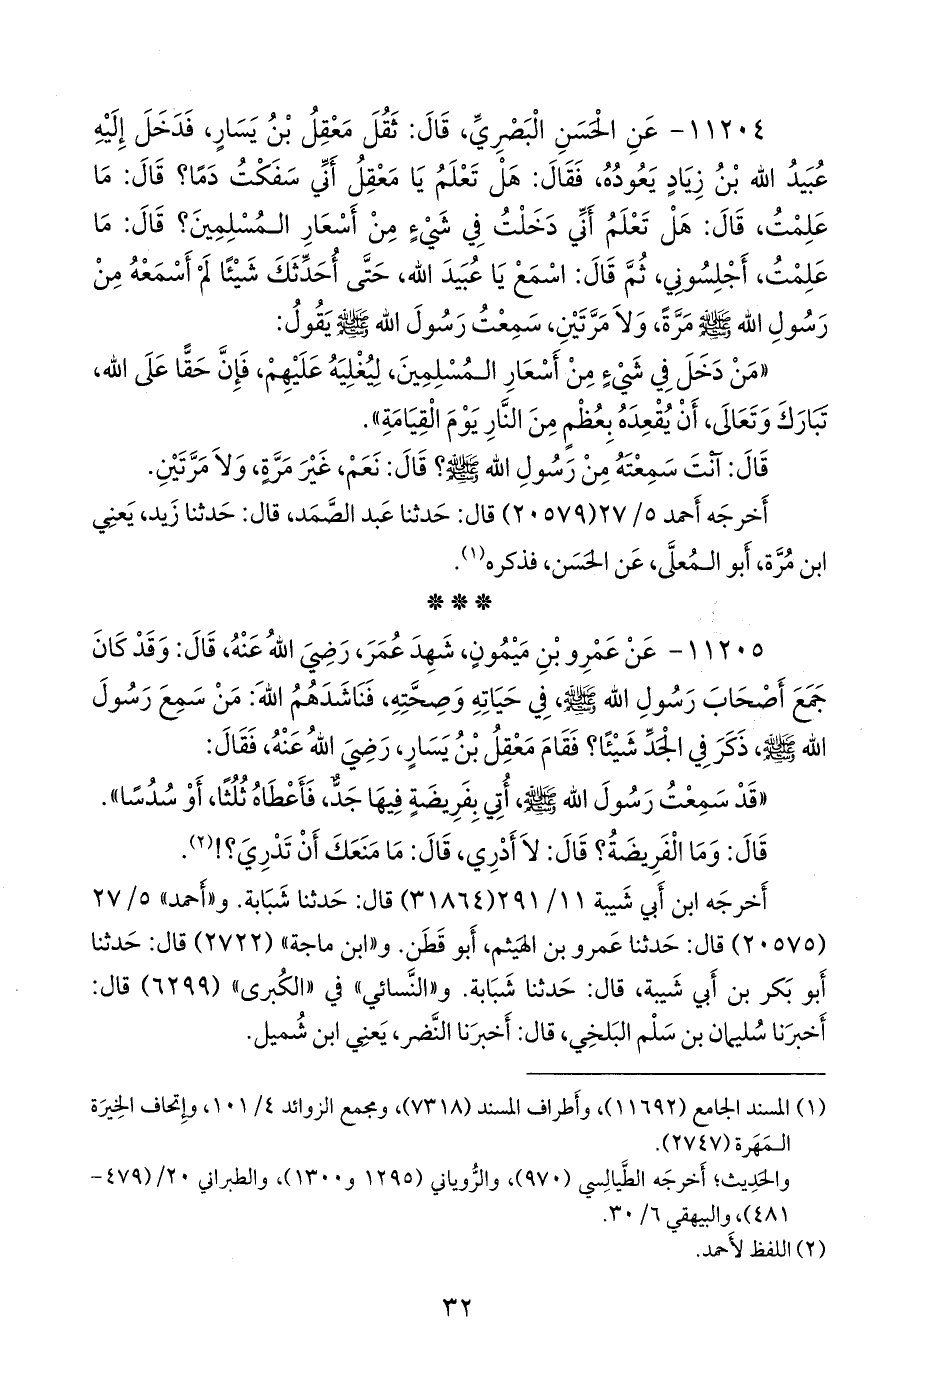 ١١٢٠٤- عَنِ الْحَسَنِ الْبَصْرِيِّ، قَالَ: ثَقُلَ مَعْقِلُ بْنُ يَسَارٍ، فَدَخَلَ إِلَيْهِ
عُبَيْدُ الله بْنُ زِيَادٍ يَعُودُهُ، فَقَالَ: هَلْ تَعْلَمُ يَا مَعْقِلُ أَنِّي سَفَكْتُ دَمًا؟ قَالَ: مَا
عَلِمْتُ، قَالَ: هَلْ تَعْلَمُ أَنِّي دَخَلْتُ فِي شَيْءٍ مِنْ أَسْعَارِ الـمُسْلِمِينَ؟ قَالَ: مَا
عَلِمْتُ، أَجْلِسُونِي، ثُمَّ قَالَ: اسْمَعْ يَا عُبَيْدَ الله، حَتَّى أُحَدِّثَكَ شَيْئًا لَمْ أَسْمَعْهُ مِنْ
رَسُولِ الله ﷺ مَرَّةً، وَلاَ مَرَّتَيْنِ، سَمِعْتُ رَسُولَ الله ﷺ يَقُولُ:
«مَنْ دَخَلَ فِي شَيْءٍ مِنْ أَسْعَارِ الـمُسْلِمِينَ، لِيُغْلِيَهُ عَلَيْهِمْ، فَإِنَّ حَقًّا عَلَى الله،
تَبَارَكَ وَتَعَالَى، أَنْ يُقْعِدَهُ بِعُظْمٍ مِنَ النَّارِ يَوْمَ الْقِيَامَةِ».
قَالَ: آنْتَ سَمِعْتَهُ مِنْ رَسُولِ الله ﷺ؟ قَالَ: نَعَمْ، غَيْرَ مَرَّةٍ، وَلاَ مَرَّتَيْنِ.
أَخرجَه أَحمد ٥/ ٢٧(٢٠٥٧٩) قال: حَدثنا عَبد الصَّمَد، قال: حَدثنا زَيد، يَعنِي
ابن مُرَّة، أَبو الـمُعلَّى، عَن الحَسَن، فذكره(١).
* * *
١١٢٠٥- عَنْ عَمْرِو بْنِ مَيْمُونٍ، شَهِدَ عُمَرَ، رَضِيَ اللهُ عَنْهُ، قَالَ: وَقَدْ كَانَ
جَمَعَ أَصْحَابَ رَسُولِ الله ﷺ، فِي حَيَاتِهِ وَصِحَّتِهِ، فَنَاشَدَهُمُ اللهَ: مَنْ سَمِعَ رَسُولَ
الله ﷺ، ذَكَرَ فِي الْجَدِّ شَيْئًا؟ فَقَامَ مَعْقِلُ بْنُ يَسَارٍ، رَضِيَ اللهُ عَنْهُ، فَقَالَ:
«قَدْ سَمِعْتُ رَسُولَ الله ﷺ، أُتِي بِفَرِيضَةٍ فِيهَا جَدٌّ، فَأَعْطَاهُ ثُلُثًا، أَوْ سُدُسًا».
قَالَ: وَمَا الْفَرِيضَةُ؟ قَالَ: لاَ أَدْرِي، قَالَ: مَا مَنَعَكَ أَنْ تَدْرِيَ؟!(٢).
أَخرجَه ابن أَبي شَيبة ١١/ ٢٩١(٣١٨٦٤) قال: حَدثنا شَبَابة. و«أَحمد» ٥/ ٢٧
(٢٠٥٧٥) قال: حَدثنا عَمرو بن الهَيثم، أَبو قَطَن. و«ابن ماجة» (٢٧٢٢) قال: حَدثنا
أَبو بَكر بن أَبي شَيبة، قال: حَدثنا شَبَابة. و«النَّسائي» في «الكُبرى» (٦٢٩٩) قال:
أَخبرَنا سُليمان بن سَلْم البَلخِي، قال: أَخبرَنا النَّضر، يَعنِي ابن شُميل.
(١) المسند الجامع (١١٦٩٢)، وأطراف المسند (٧٣١٨)، ومجمع الزوائد ٤/ ١٠١، وإتحاف الخِيرَة
الـمَهَرة (٢٧٤٧).
والحَدِيث؛ أَخرجَه الطَّيالِسي (٩٧٠)، والرُّوياني (١٢٩٥ و١٣٠٠)، والطبراني ٢٠/(٤٧٩-
٤٨١)، والبيهقي ٦/ ٣٠.
(٢) اللفظ لأَحمد.
٣٢